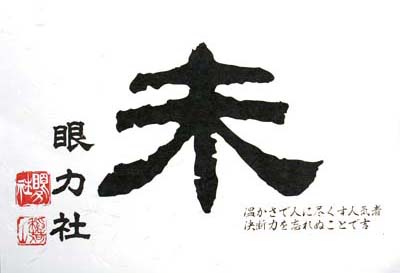 未
眼力社
温かさで人に尽くす人気者
決断力を忘れぬことで吉